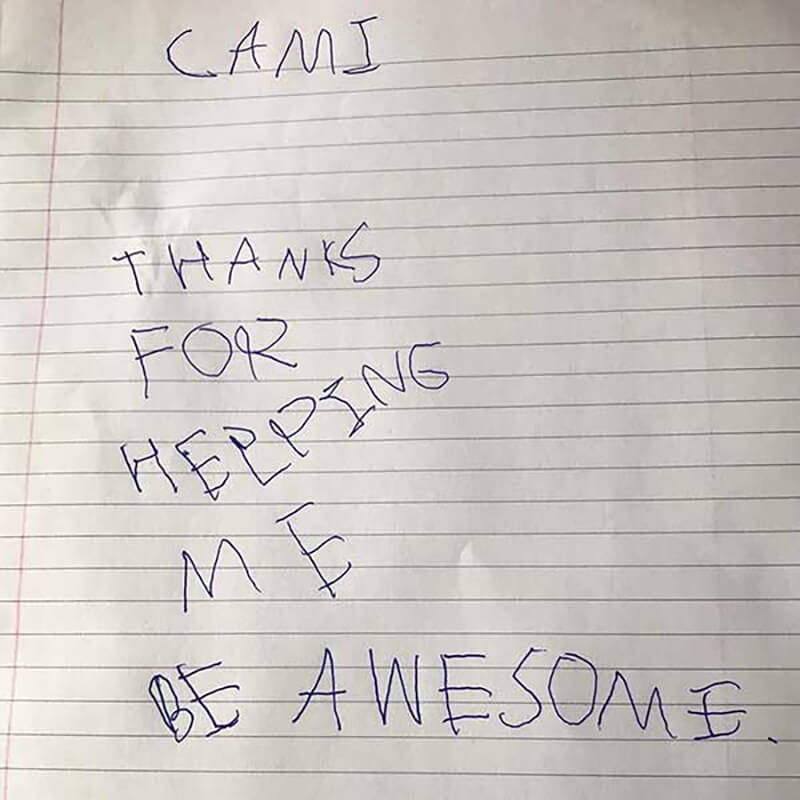 CAMI
THANKS
FOR
HELPPING
ME
BE AWESOME.